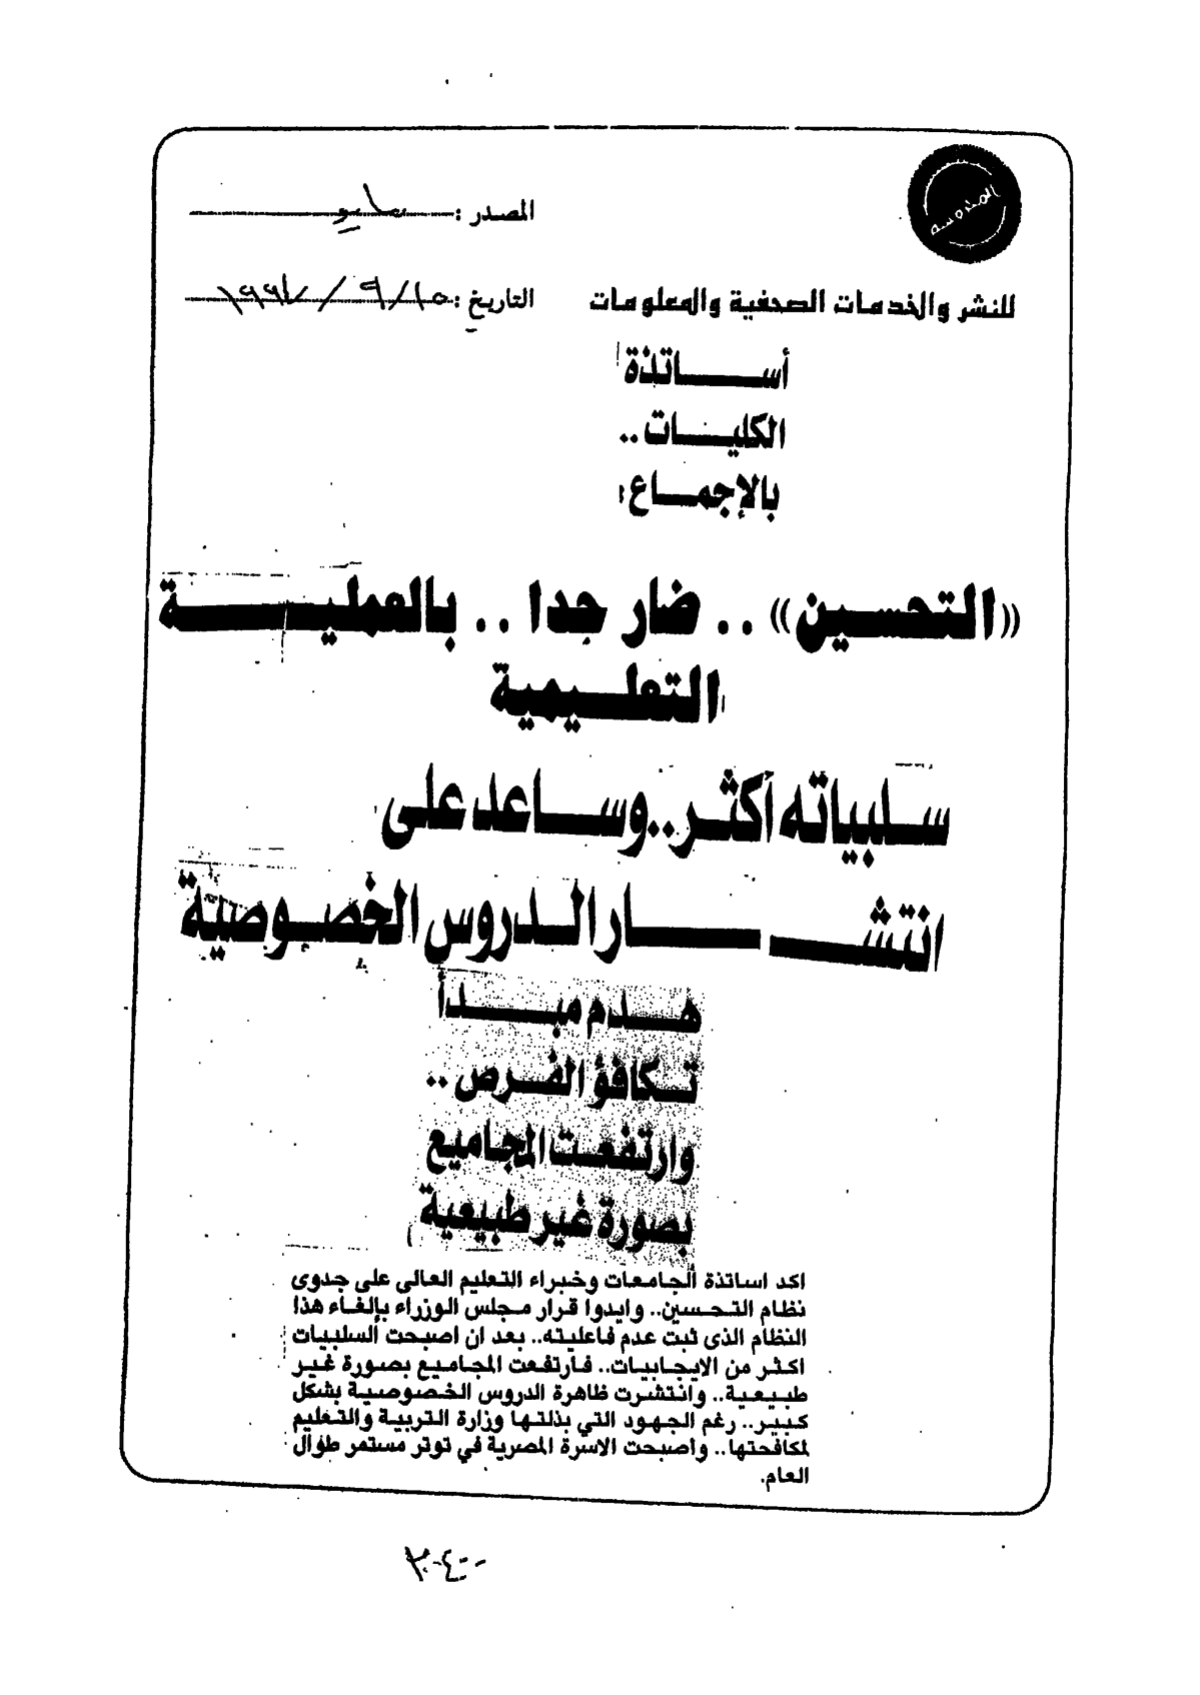 المصدر : مايو
للنشر والخدمات الصحفية والمعلومات
التاريخ : ١٥ / ٩ / ١٩٩٧
أساتذة
الكليات ..
بالإجماع :
«التحسين» .. ضار جدا .. بالعملية
التعليمية
سلبياته أكثر .. وساعد على
انتشار الدروس الخصوصية
هدم مبدأ
تكافؤ الفرص ..
وارتفعت المجاميع
بصورة غير طبيعية
اكد اساتذة الجامعات وخبراء التعليم العالى على جدوى
نظام التحسين.. وايدوا قرار مجلس الوزراء بإلغاء هذا
النظام الذى ثبت عدم فاعليته.. بعد ان اصبحت السلبيات
اكثر من الايجابيات.. فارتفعت المجاميع بصورة غير
طبيعية.. وانتشرت ظاهرة الدروس الخصوصية بشكل
كبير.. رغم الجهود التي بذلتها وزارة التربية والتعليم
لمكافحتها.. واصبحت الاسرة المصرية في توتر مستمر طوال
العام.